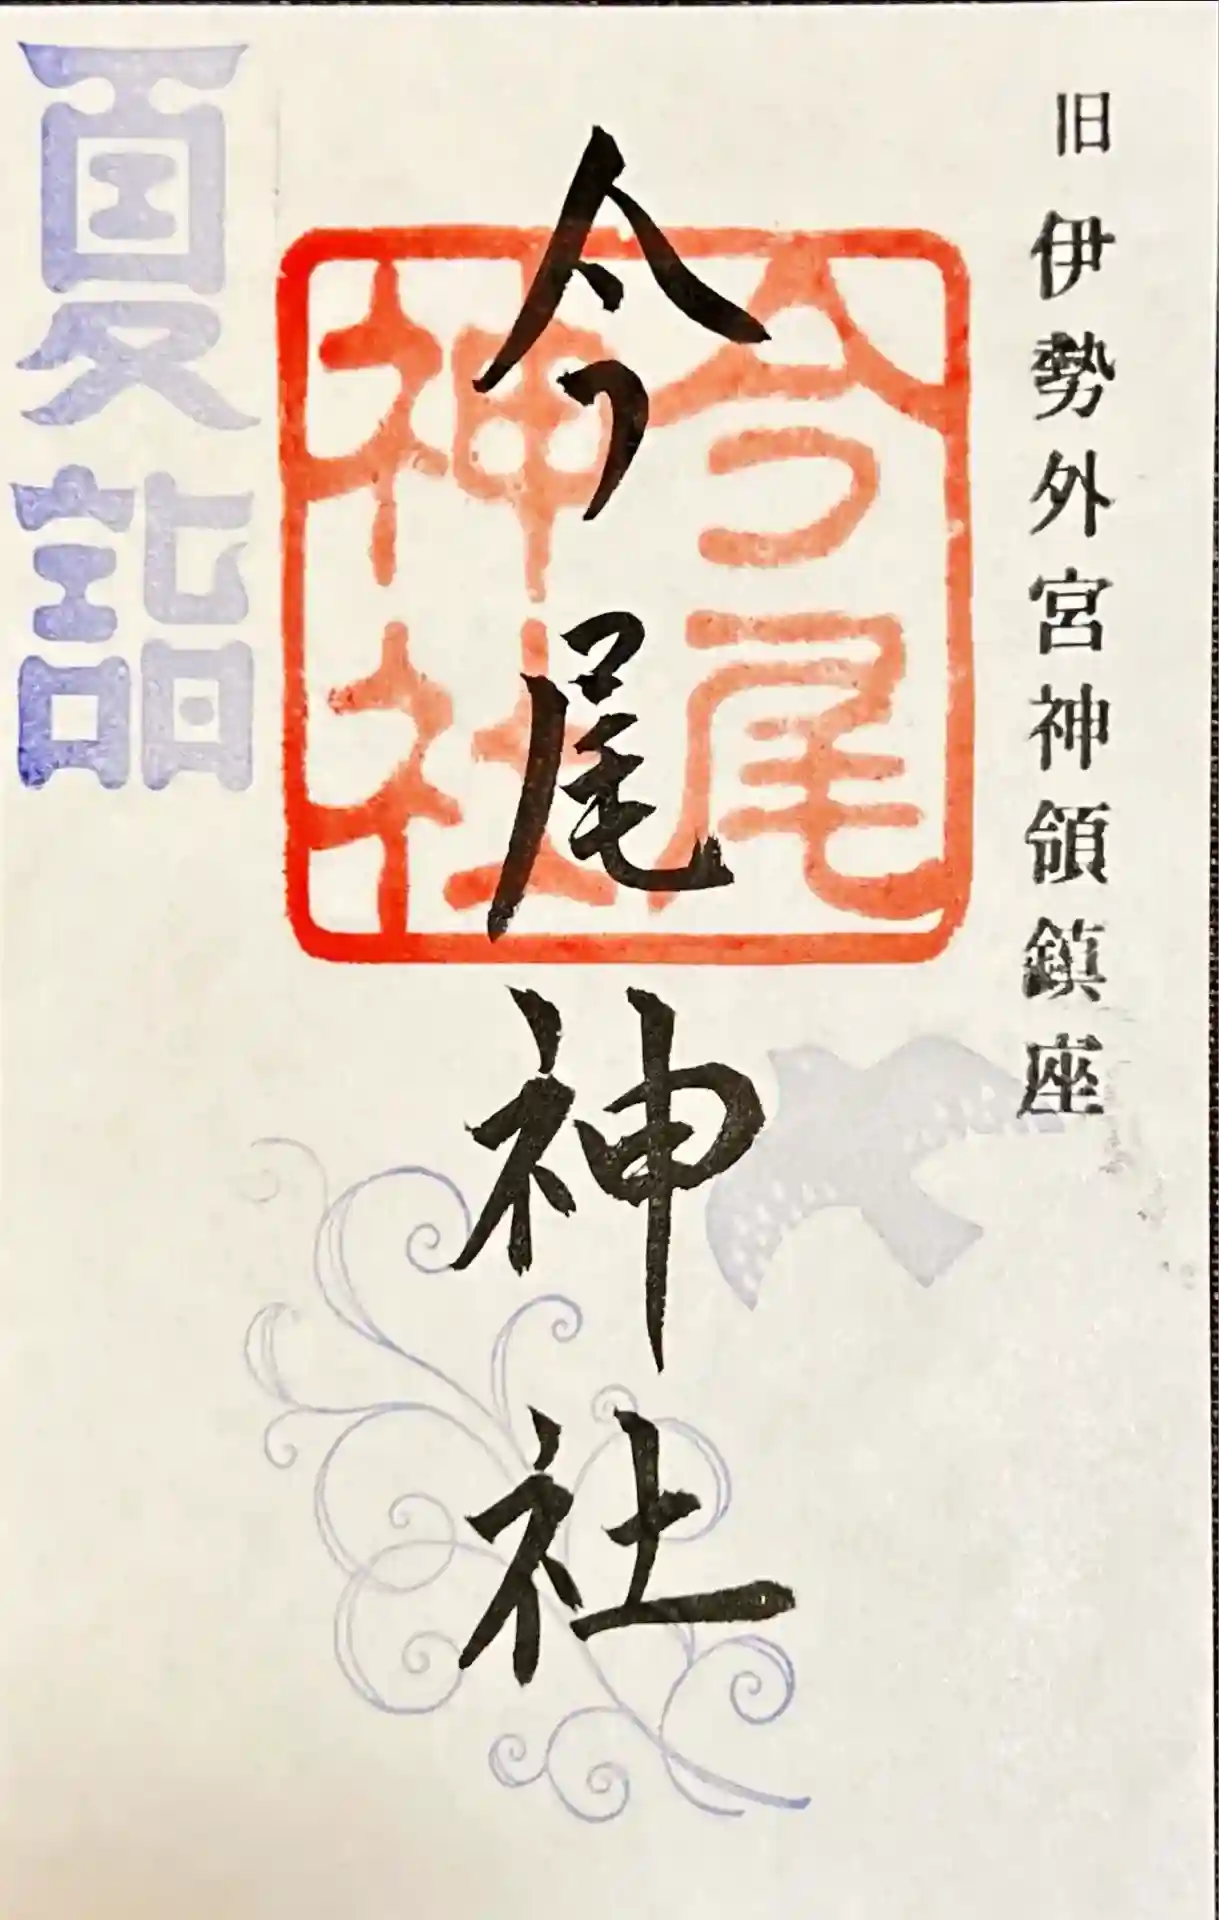 旧伊勢外宮神領鎮座
今尾神社
今尾
神社
夏詣